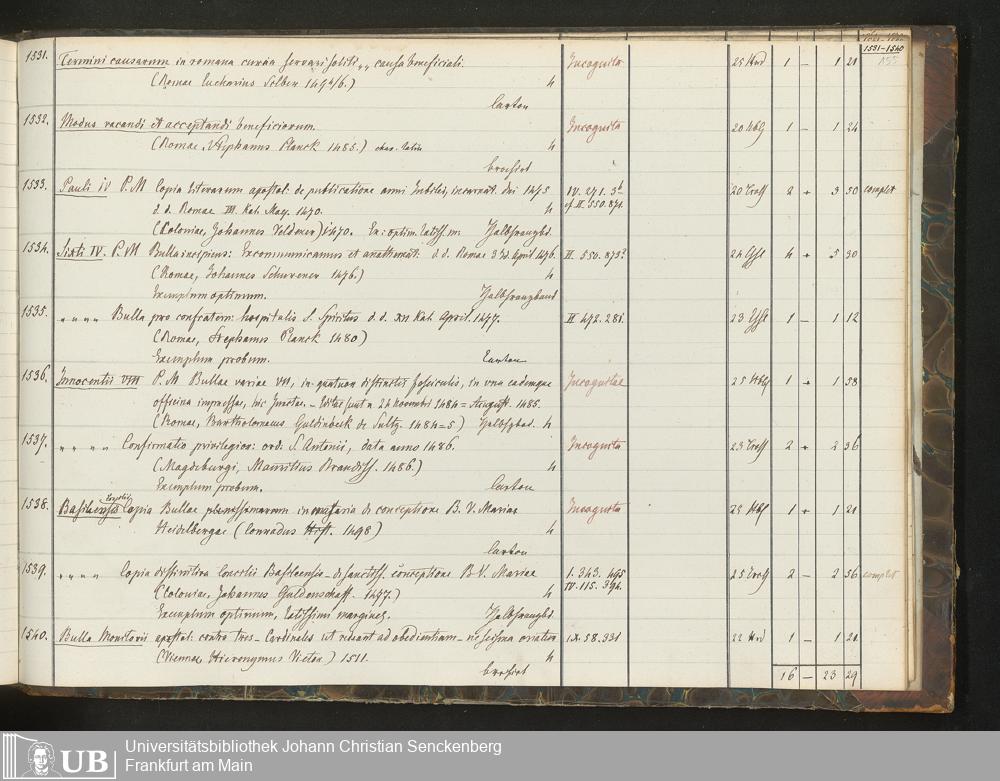 1531-1540
155
1531. Termini causarum in romana curia servari soliti „ causa beneficiali. Incognita 25 1 — 1 21
(Romae Eucharius Silber 149 ) 4
Carton
1532. Modus vacandi et acceptandi beneficiorum. Incognita 20 1 — 1 24
(Romae, Stephanus Planck 1485.) char. latin 4
brochirt
1533. Pauli IV P.M Copia literarum apostol: de publicatione anni Jubilei, incarnat. dni 1475 IV. 271. 3 20 2 + 3 50 complet
d. d. Romae III. Kal. May. 1470. 4 cf II. 550. 871.
(Coloniae, Johannes Veldener) 1470. Ex: optim. latiss. m. Halbfranzbd.
1534. Sixti IV. P.M Bulla incipiens: Excommunicamus et anathemat: d. d. Romae 3 April 1476. II. 550. 873 24 4 + 5 30
(Romae, Johannes Schurener 1476.) 4
Exemplum optimum. Halbfranzband
1535. „ „ „ „ Bulla pro confratern: hospitalis S. Spiritus d. d. XII Kal. April. 1477. II 472. 281. 23 1 — 1 12
(Romae, Stephanus Planck 1480)
Exemplum probum. Carton
1536. Innocentii VIII P. M Bullae variae VII, in quatuor distinctis fasciculis, in una eademque Incognitae 25 1 + 1 58
officina impressae, hic junctae. — sunt a 24 Novembri 1484 = August. 1485.
(Romae, Bartholomaeus Guldinbeck de Sultz. 1484=5) 4
1537. „ „ „ „ Confirmatio privilegior: ord. S. Antonii, data anno 1486. Incognita 23 2 + 2 36
(Magdeburgi, Mauritius Brandiss. 1486.) 4
Exemplum probum. Carton
1538. Basileensis Copia Bullae in materia de conceptione B. V. Mariae Incognita 22 1 + 1 21
Heidelbergae (Conradus Hist. 1498) 4
Carton
1539. „ „ „ „ Copia Concilii Basileensis - conceptione B V. Mariae I. 343. 495 25 2 — 2 56 complet
(Coloniae, Johannes Guldenschaff. 1477.) 4 IV. 115.
Exemplum optimum, latissimi margines. Halbfranzbd.
1540. Bulla Monitorii apostol: contra tres - Cardinales ut redeant ad obedientiam - IX. 58. 331 22 1 — 1 21
(Viennae, Hieronymus Vietor.) 1511. 4
brochirt 16 — 23 29
UB
Universitätsbibliothek Johann Christian Senckenberg
Frankfurt am Main